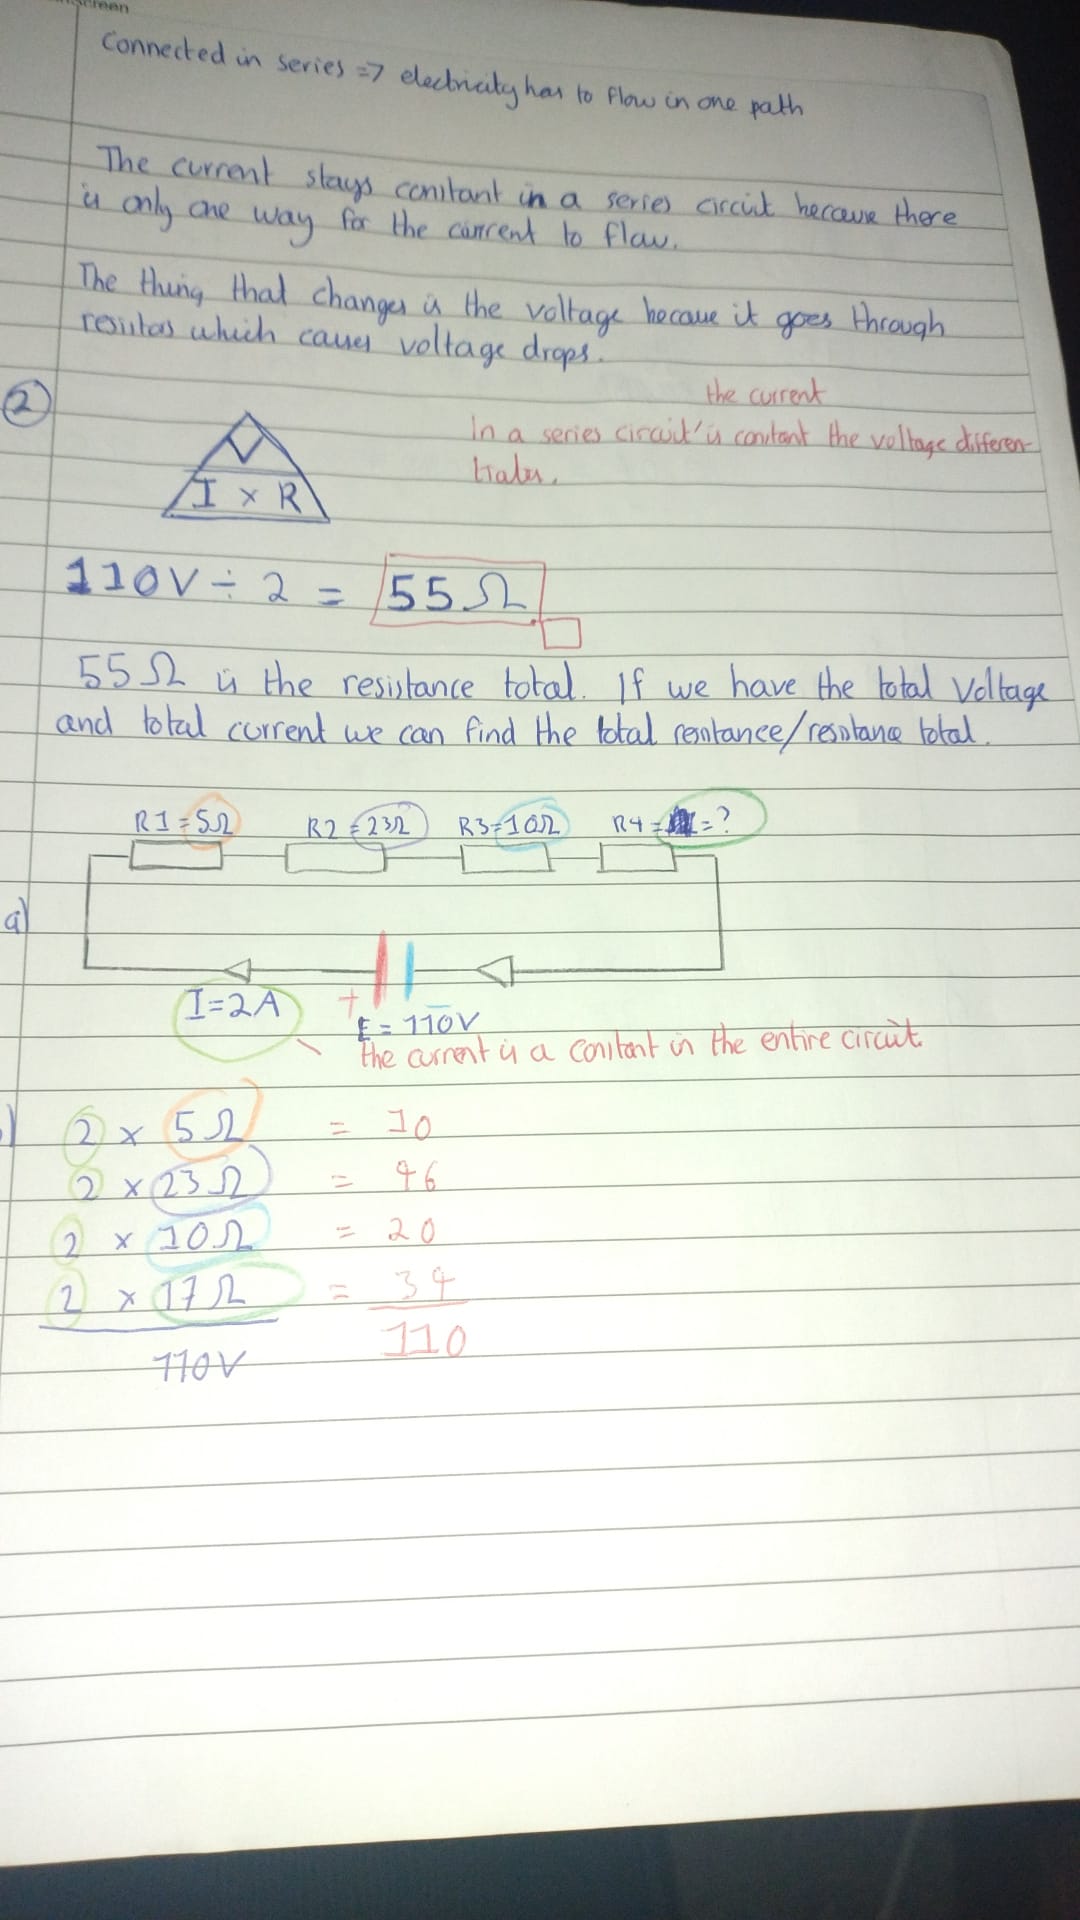 screen
Connected in series => electricity has to flow in one path
The current stays constant in a series circuit because there
is only one way for the current to flow.
The thing that changes is the voltage because it goes through
resistors which causes voltage drops.
2
the current
In a series circuit is constant the voltage differen-
tiates.
V
I x R
110V ÷ 2 = 55Ω
55Ω is the resistance total. If we have the total Voltage
and total current we can find the total resistance/resistance total.
R1=5Ω R2=23Ω R3=10Ω R4= =?
a)
I=2A + -
E = 110V
the current is a constant in the entire circuit.
) 2 x 5Ω = 10
2 x 23Ω = 46
2 x 10Ω = 20
2 x 17Ω = 34
110V 110